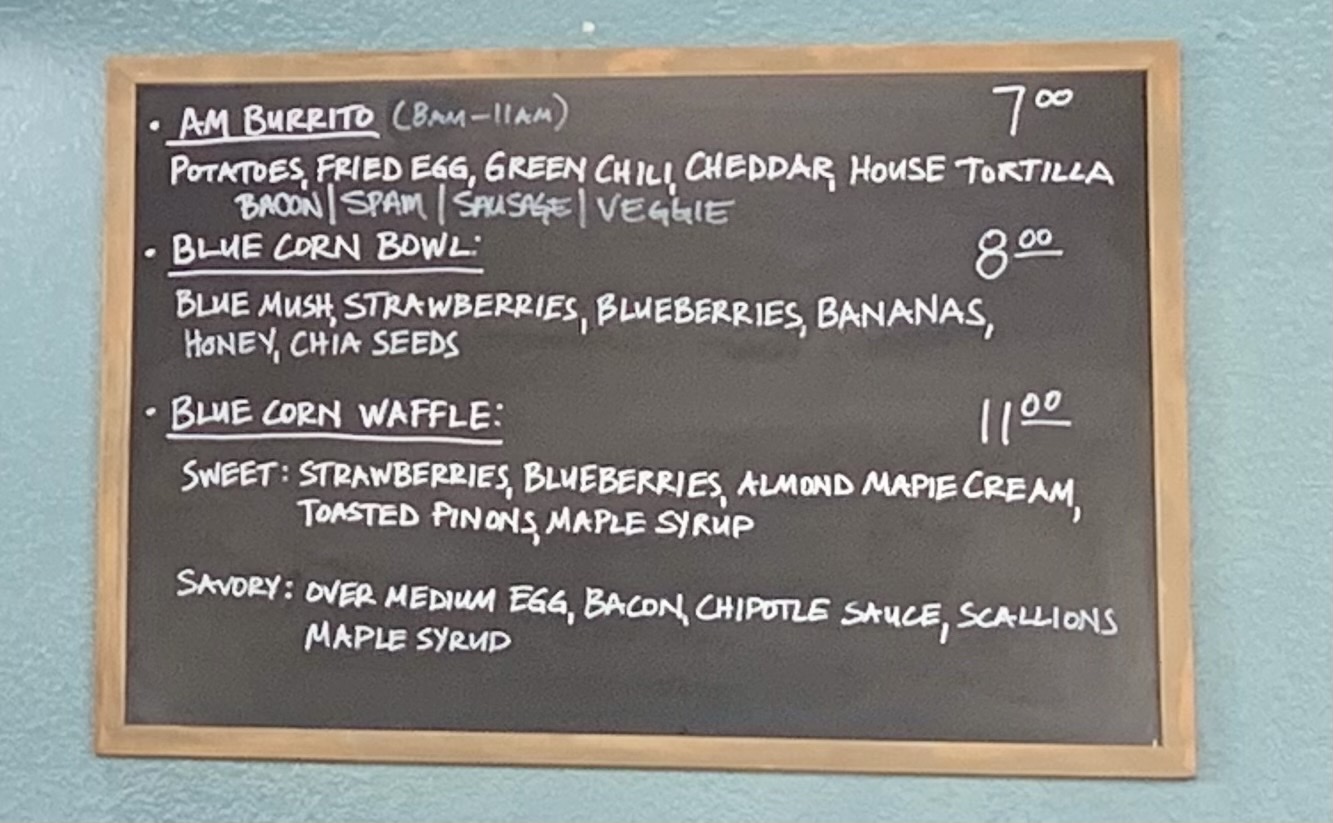 • AM BURRITO (8AM-11AM) 7.00
POTATOES, FRIED EGG, GREEN CHILI, CHEDDAR, HOUSE TORTILLA
BACON | SPAM | SAUSAGE | VEGGIE
• BLUE CORN BOWL: 8.00
BLUE MUSH, STRAWBERRIES, BLUEBERRIES, BANANAS,
HONEY, CHIA SEEDS
• BLUE CORN WAFFLE: 11.00
SWEET: STRAWBERRIES, BLUEBERRIES, ALMOND MAPLE CREAM,
TOASTED PINONS, MAPLE SYRUP
SAVORY: OVER MEDIUM EGG, BACON, CHIPOTLE SAUCE, SCALLIONS
MAPLE SYRUP